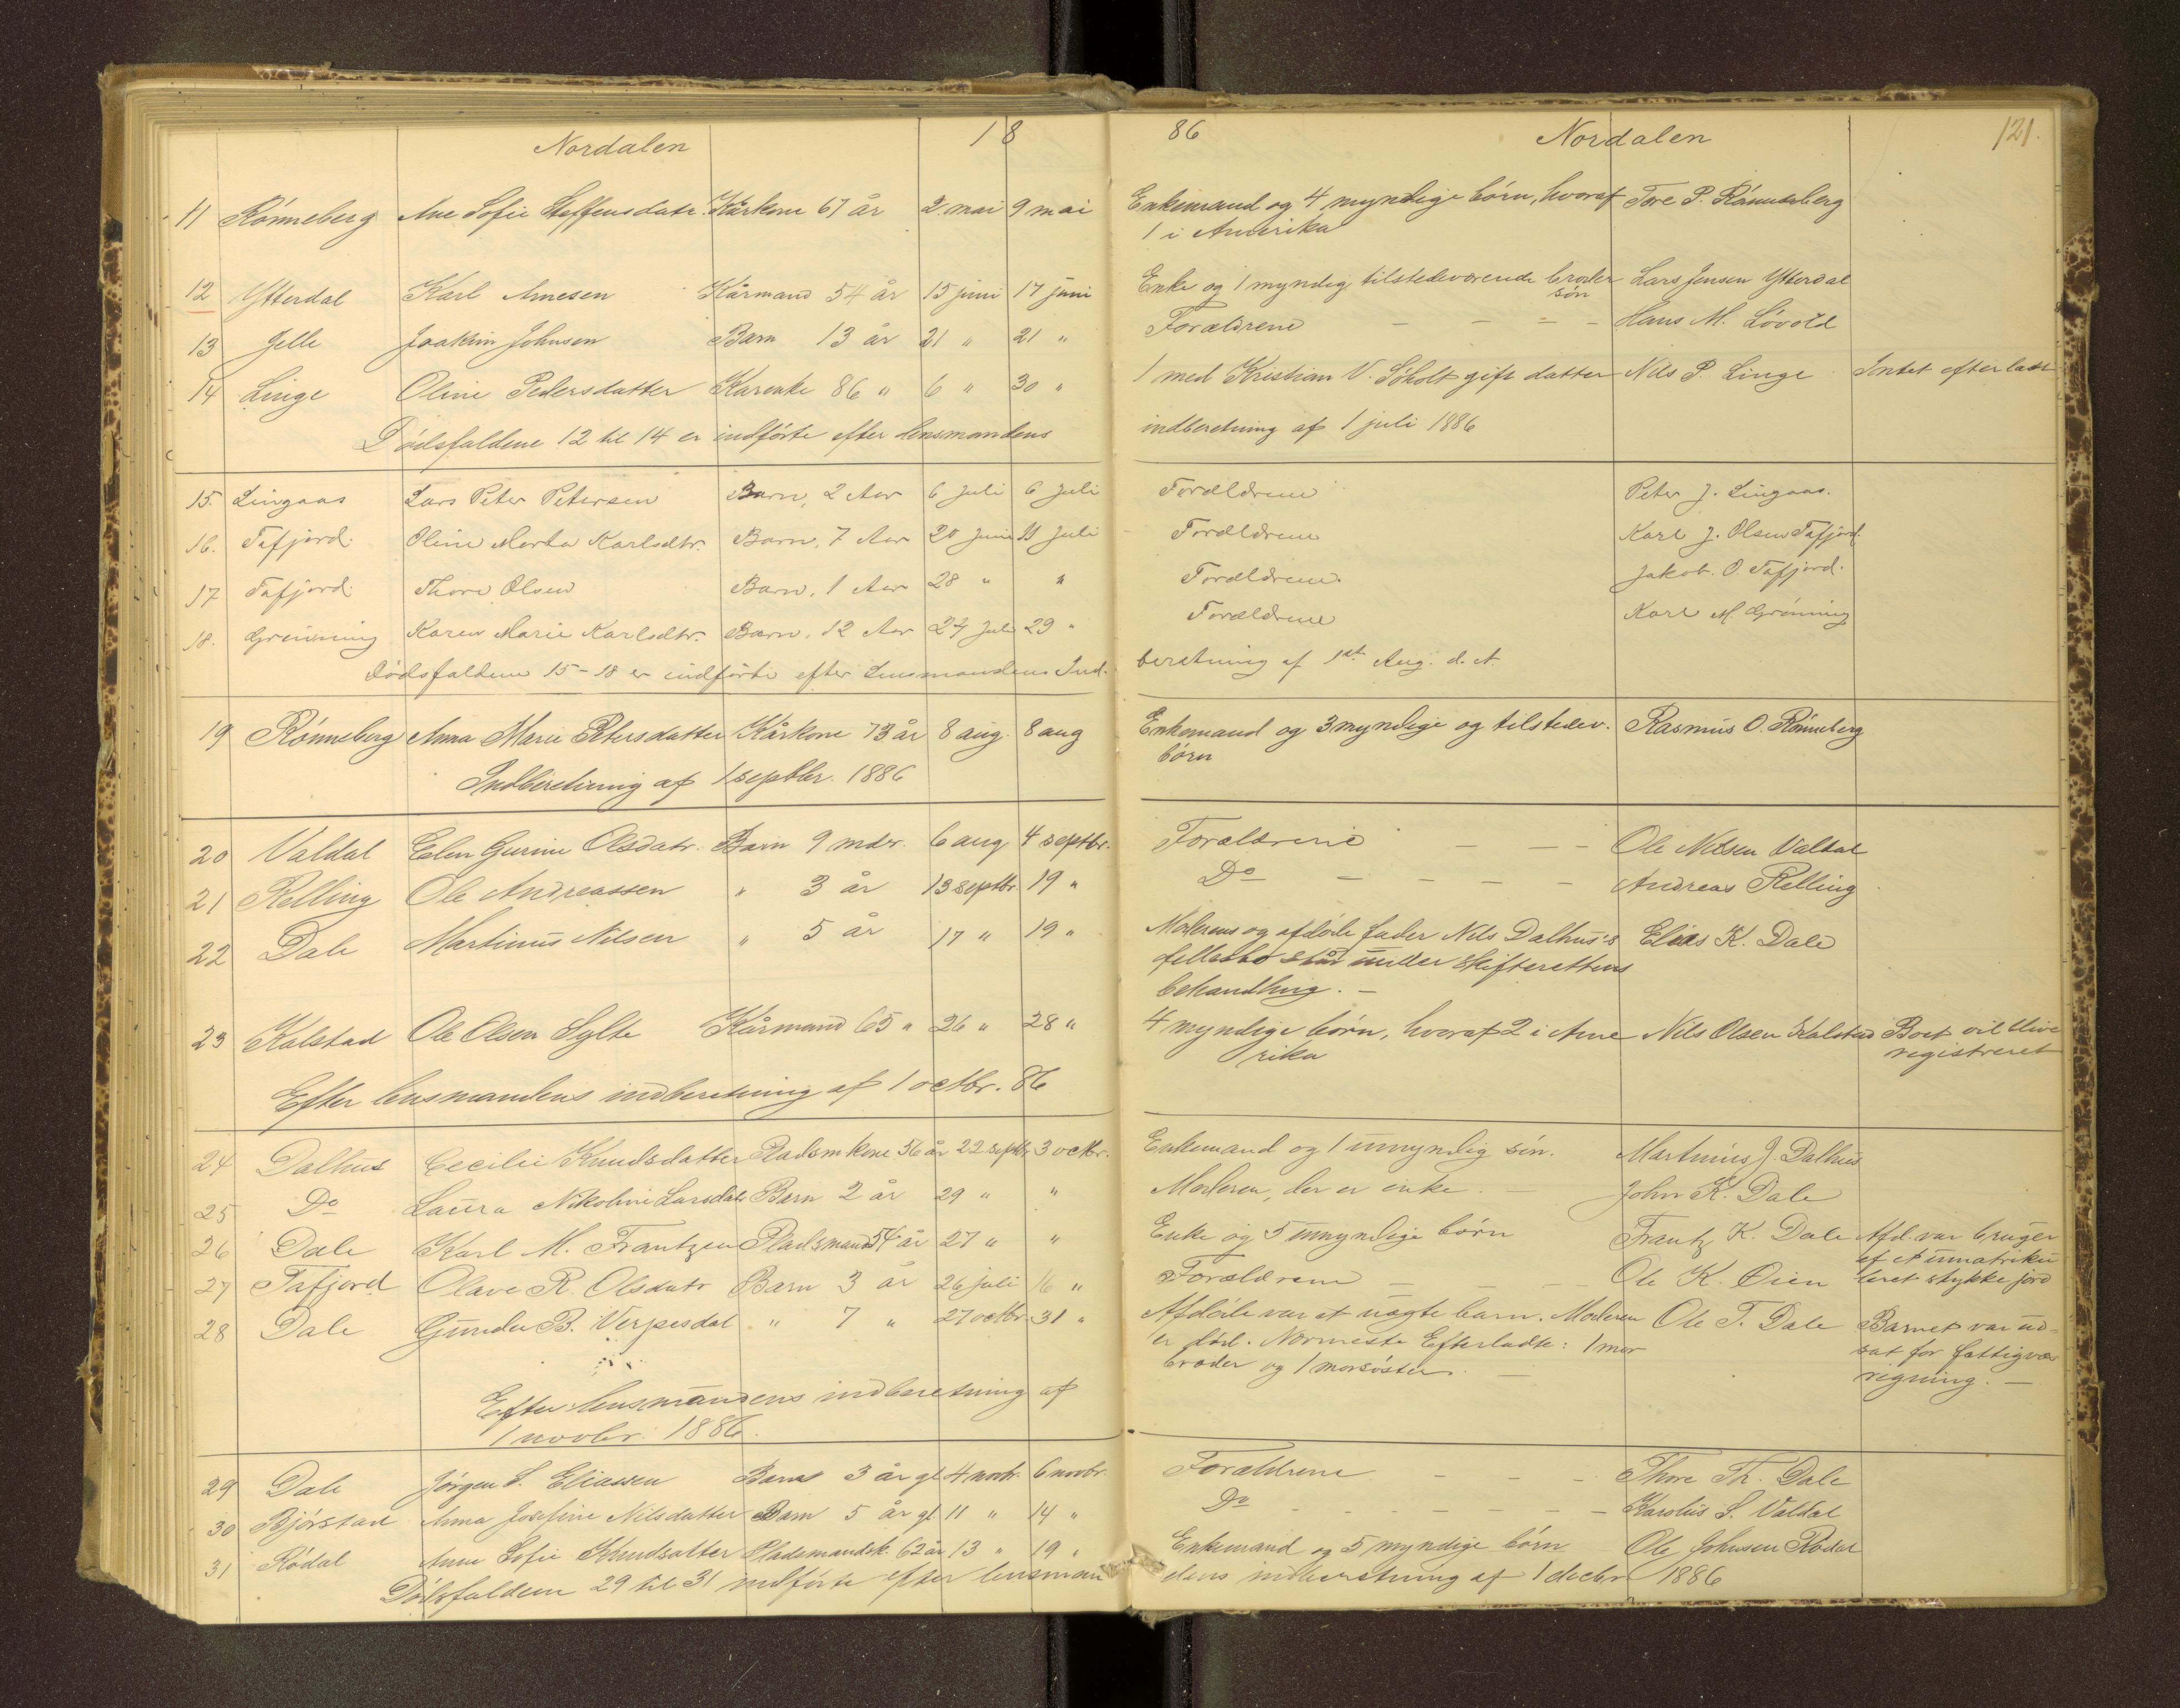 Nordalen 18 86 Nordalen 121.
11 Rønneberg Ane Sofie Steffensdatr. Kårkone 67 år 2 mai 9 mai Enkemand og 4 myndige børn, hvoraf Tore P. Rønneberg
1 i Amerika
12 Ytterdal Karl Arnesen Kårmand 54 år 15 juni 17 juni Enke og 1 myndig tilstedeværende broder Lars Jensen Ytterdal
søn
13 Jelle Joakim Johnsen Barn 13 år 21 " 21 " Forældrene — — — — Hans M. Løvold
14 Linge Oline Pedersdatter Kårenke 86 " 6 " 30 " 1 med Kristian V. Søholt gift datter Nils P. Linge Intet efterladt
Dødsfaldene 12 til 14 er indførte efter lensmandens indberetning af 1 juli 1886
15. Lingaas Lars Peter Petersen Barn, 2 Aar 6 Juli 6 Juli Forældrene Peter J. Lingaas.
16. Tafjord. Oline Marta Karlsdtr. Barn, 7 Aar 20 Juni 11 Juli Forældrene Karl J. Olsen Tafjord.
17 Tafjord. Thore Olsen Barn, 1 Aar 28 " " Forældrene. Jakob. O. Tafjord.
18. Grønning Karen Marie Karlsdtr. Barn, 12 Aar 27 Juli 29 " Forældrene Karl M Grønning
Dødsfaldene 15-18 er indførte efter Lensmandens Ind- beretning af 1st Aug. d. A.
19 Rønneberg Anna Marie Petersdatter Kårkone 73 år 8 aug. 8 aug Enkemand og 3 myndige og tilstedev. Rasmus O. Rønneberg
børn
Indberetning af 1 septbr. 1886
20 Valdal Elen Gurine Olsdatr. Barn 9 mdr. 6 aug 4 septbr. Forældrene — — — Ole Nilsen Valdal
21 Relling Ole Andreassen " 3 år 13 septbr 19 " Do — — — — — Andreas Relling
22 Dale Martinus Nilsen " 5 år 17 " 19 " Moderens og afdøde fader Nils Dalhus's Elias K. Dale
fellesbo står under skifterettens
behandling. —
23 Kalstad Ole Olsen Sylte Kårmand 65 " 26 " 28 " 4 myndige børn, hvoraf 2 i Ame Nils Olsen Kalstad Boet vil blive
rika registreret
Efter lensmandens indberetning af 1 octbr. 86
24 Dalhus Cecilie Knudsdatter Pladsmkone 56 år 22 septbr 3 octbr. Enkemand og 1 umyndig søn. Martinus J. Dalhus
25 Do Laura Nikoline Larsdatr Barn 2 år 29 " " Moderen, der er enke. — John K. Dale
26 Dale Karl M. Frantzen Pladsmand 54 år 27 " " Enke og 5 umyndige børn Frantz K. Dale Afd. var bruger
af et umatriku
27 Tafjord Olave R. Olsdatr Barn 3 år 26 juli 16 " Forældrene — — — — Ole K. Øien leret stykke jord
28 Dale Gunder B. Verpesdal " 7 " 27 octbr. 31 " Afdøde var et uægte barn. Moderen Ole T. Dale Barnet var ud-
er død. Nærmeste Efterladte: 1 mor sat for fattigvæs
broder og 1 morsøster. —
Efter lensmandens indberetning af
1 novbr. 1886.
29 Dale Jørgen S. Eliassen Barn 3 år gl. 4 novbr. 6 novbr. Forældrene — — — Thore Th. Dale
30 Bjørstad Anna Josefine Nilsdatter Barn 5 år gl. 11 " 14 " Do — — — — — — Karolus S. Valdal
31 Rødal Anne Sofie Knudsdatter Pladsmandsk. 62 år 13 " 19 " Enkemand og 5 myndige børn Ole Johnsen Rødal
Dødsfaldene 29 til 31 indførte efter lensman dens indberetning af 1 decbr 1886